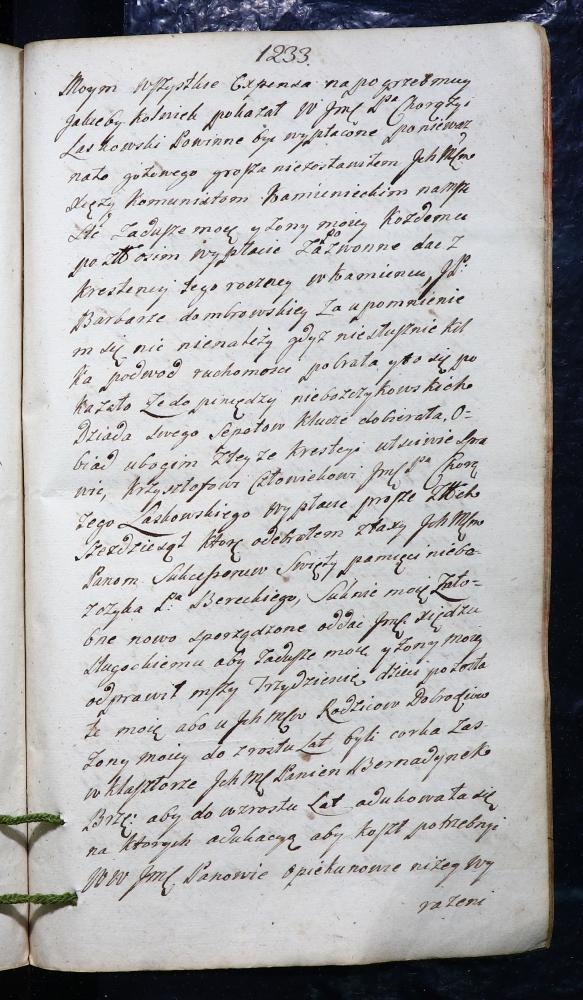 1233
Moym wszystkie Expensa na pogrzeb muy
jakieby kolwiek pokazał W Jmć Pa Chorąży
Laskowski Powinne być wypłacone ponieważ
na to gotowego grosza nie zostawiłem Jch Mćiow
Xięży Komunistom Kamienieckim na msze
Sść za dusze moię y żony moiey Kozdemu
po złł osim wypłacić Za Pozwonne dać z
krestencij tego roczney w Kamieńcu, JPi
Barbarze dombrowskiey za upomnienie
m się nic nienależy gdyż niesłusznie kil
ka podwod ruchomosci pobrała y to się po
kazało że do piniędzy nieboszczykowskich
Dziada swego Sepotow klucze dobierała, O-
biad ubogim z tey ze krestęcyi uczciwie spra
wić, Krzysztofowi Człowiekowi Jmć Pa Chorą
żego Laskowskiego wypłacić proszę złłch
szezdziesąt ktorę odebrałem z łaxy Jch Mćiow
Panom Sukcessorow Swięty pamięci niebo-
zczyka Pa Bereckiego, Suknie moię Żało-
bne nowo sporządzone oddać Jmć Xiędzu
Długochiemu aby za dusze moię y żony moiey
odprawił mszy Trzydzieście dzieci pozosta
łe moię abo u Jch Mćiow Rodzicow Dobrodziow
żony moiey do zrostu lat byli corka zas
w klasztorze Jch Mć Panien Bernadynek
Brzę: aby do wzrostu Lat adukowała się
na ktorych adukacyą aby koszt potrzebnyi
WW Jmć Panowie opiekunowie niżey wy
razeni